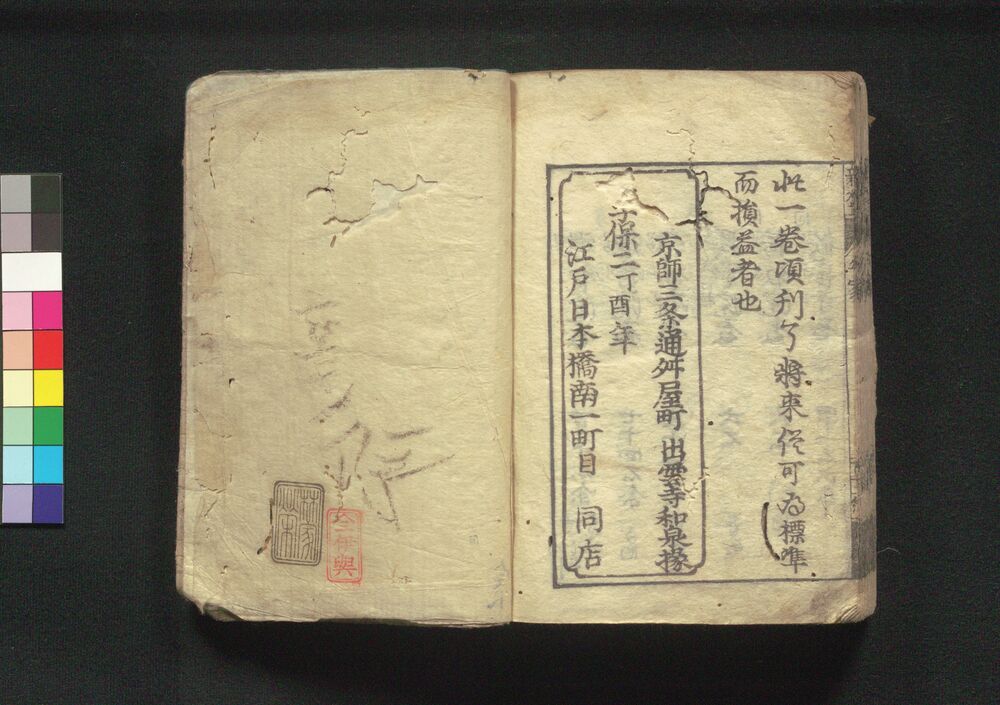 此一巻項刊了將来従可為標準
而損益者也
京師三条通舛屋町 出雲寺和泉掾
享保二丁酉年
江戸日本橋南一町目 同店